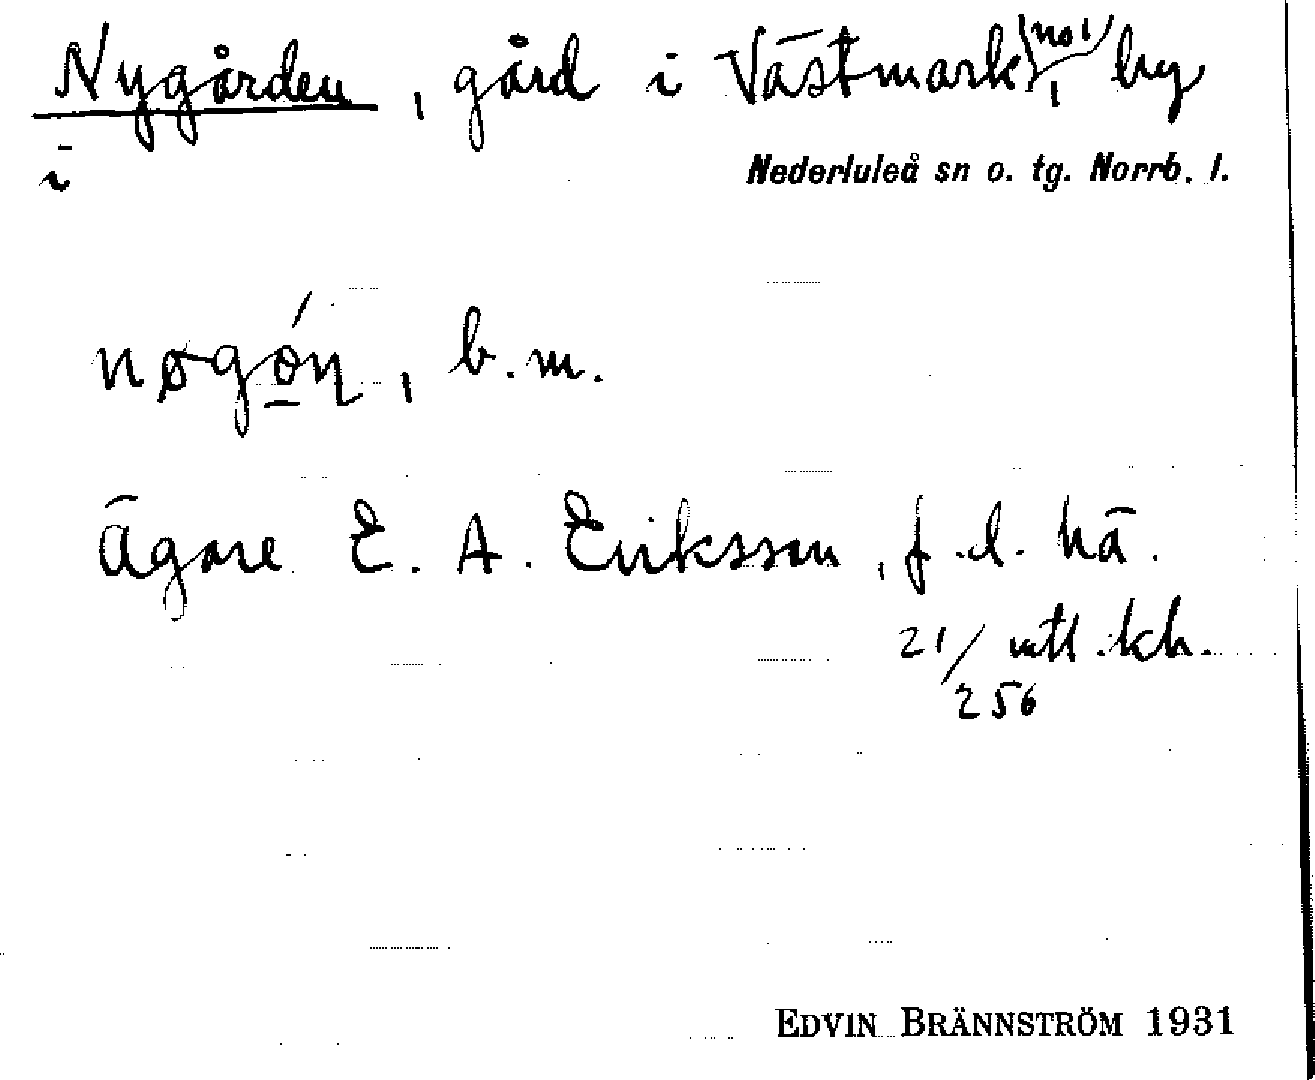 Nygården, gård i Västmark, no 1 by
i
Nederluleå sn o. tg. Norrb. l.
nøgǿn, b.m.
Ägare E. A. Eriksson, f.d. hä.
21/256 utl. kh.
EDVIN BRÄNNSTRÖM 1931